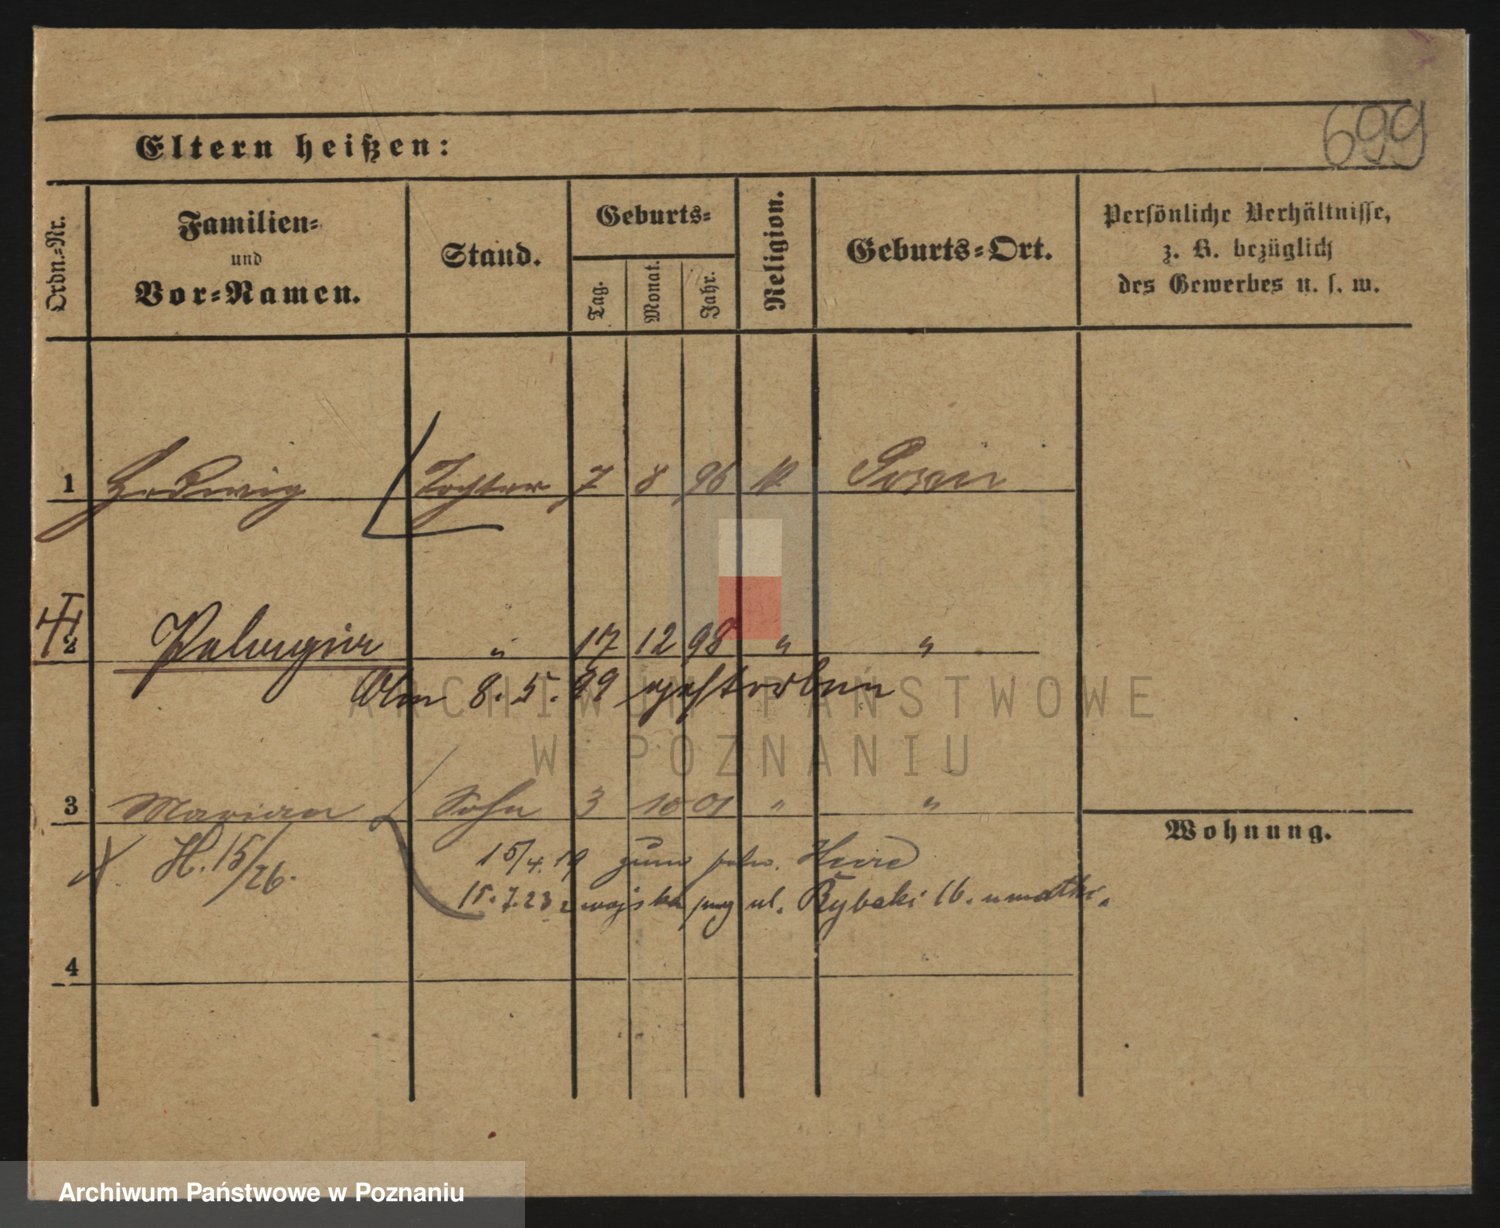 699
Eltern heißen:
Ordn.-Nr.
Familien-
und
Vor-Namen.
Stand.
Geburts-
Tag.
Monat.
Jahr.
Religion.
Geburts-Ort.
Persönliche Verhältnisse,
z. B. bezüglich
des Gewerbes u. s. w.
1 Hedwig Tochter 7 8 96 k Posen
2 Pelagia " 17 12 98 " "
Am 8. 5. 99 gestorben
ARCHIWUM PAŃSTWOWE
W POZNANIU
3 Marian Sohn 3 10 01 " "
Wohnung.
H. 15/26.
15/4. 19 zum poln. Heere
15. 7. 23 z wojska ul. Rybaki 16. u matki.
4
Archiwum Państwowe w Poznaniu